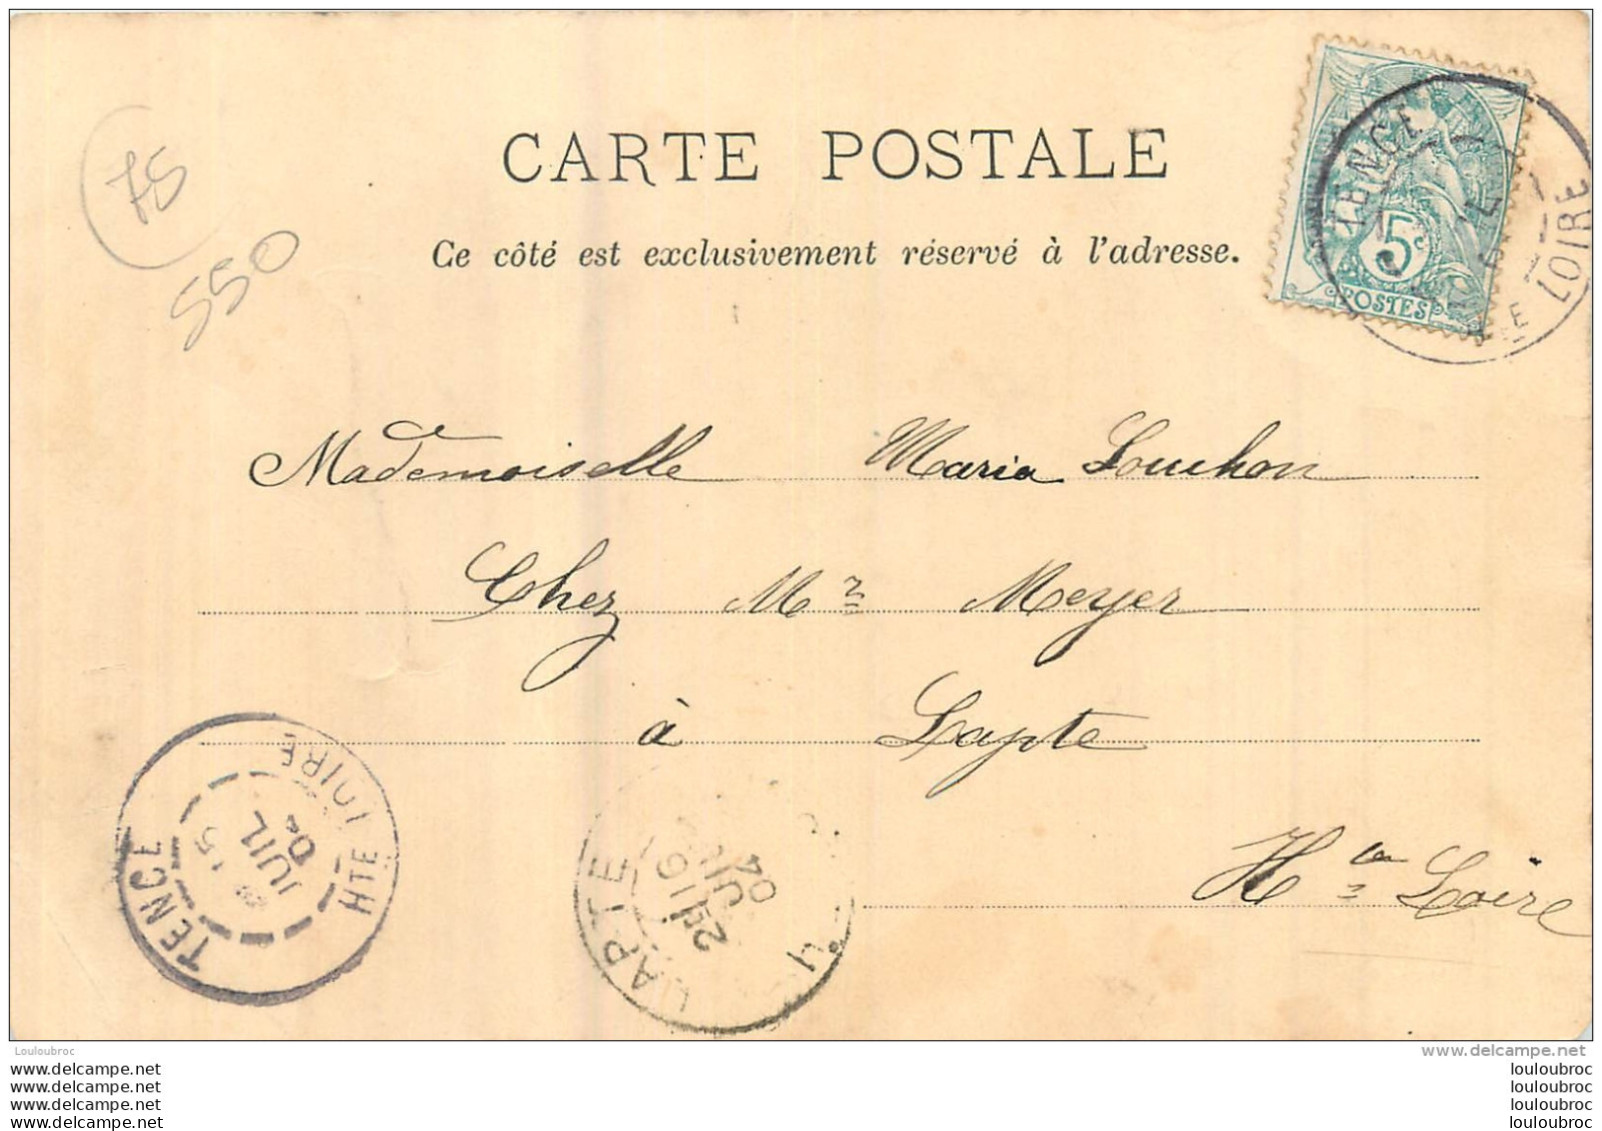 CARTE POSTALE
Ce côté est exclusivement réservé à l'adresse.
75
550
5c
POSTES
TENCE
LOIRE
Mademoiselle Maria Souchon
Chez Mr Meyer
à Lapte
Hte Loire
TENCE
15
JUIL
04
HTE LOIRE
LAPTE
2E
16
04
Louloubroc
www.delcampe.net
www.delcampe.net
www.delcampe.net
www.delcampe.net
www.delcampe.net
louloubroc
louloubroc
louloubroc
louloubroc